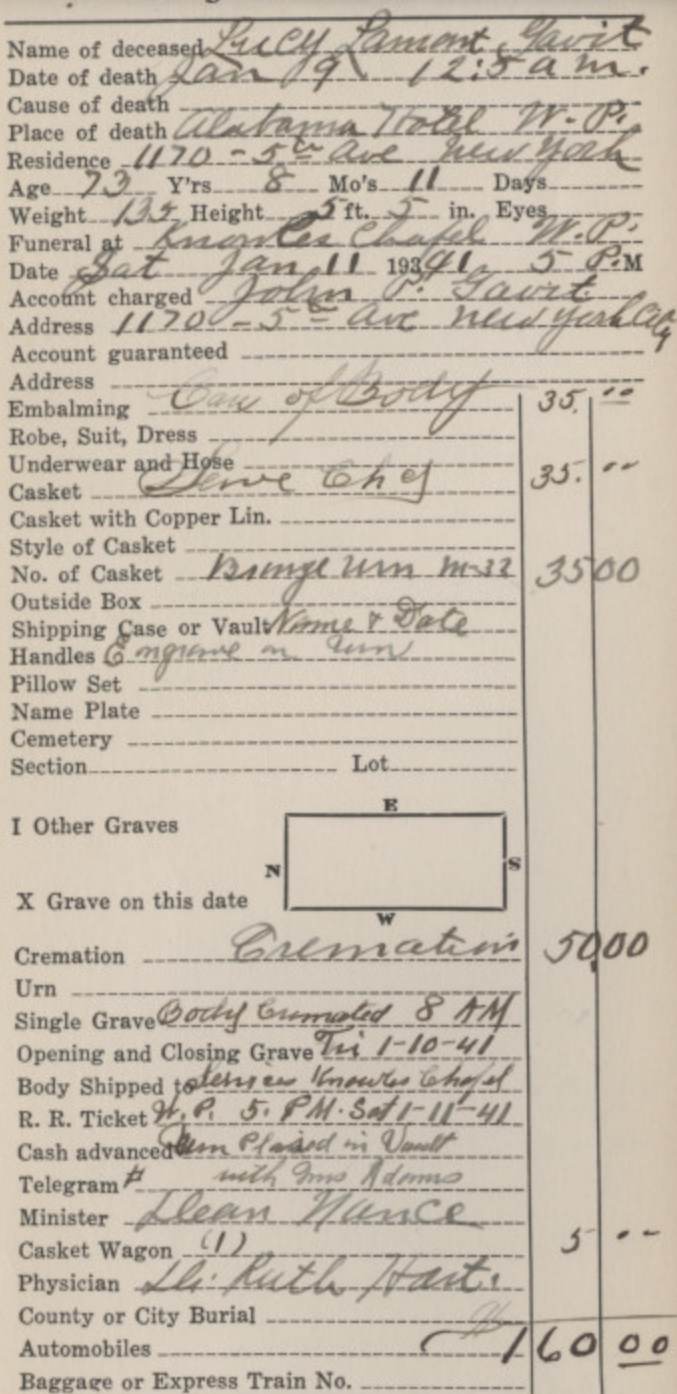 Name of deceased Lucy Lamont Gavit
Date of death Jan 9 12:5 a m.
Cause of death
Place of death Alabama Hotel W. P.
Residence 1170 - 5th Ave New York
Age 73 Y'rs 8 Mo's 11 Days
Weight 135 Height 5 ft. 5 in. Eyes
Funeral at Knowles Chapel W. P.
Date Sat Jan 11 19341 5 P. M
Account charged John P. Gavit
Address 1170 - 5th Ave New York City
Account guaranteed
Address
Embalming Care of Body 35. 00
Robe, Suit, Dress
Underwear and Hose
Casket Serve Chg 35. 00
Casket with Copper Lin.
Style of Casket
No. of Casket Bronze Urn M-32 35 00
Outside Box
Shipping Case or Vault Name & Date
Handles Engrave on Urn
Pillow Set
Name Plate
Cemetery
Section Lot
E
I Other Graves
N S
X Grave on this date
W
Cremation Cremation 50 00
Urn
Single Grave Body Cremated 8 AM
Opening and Closing Grave Fri 1-10-41
Body Shipped to Services Knowles Chapel
R. R. Ticket W. P. 5. PM. Sat 1-11-41
Cash advanced Urn Placed in Vault
Telegram # with Mrs Adams
Minister Dean Nance
Casket Wagon (1) 5 00
Physician Dr. Ruth Hart.
County or City Burial
Automobiles 160 00
Baggage or Express Train No.